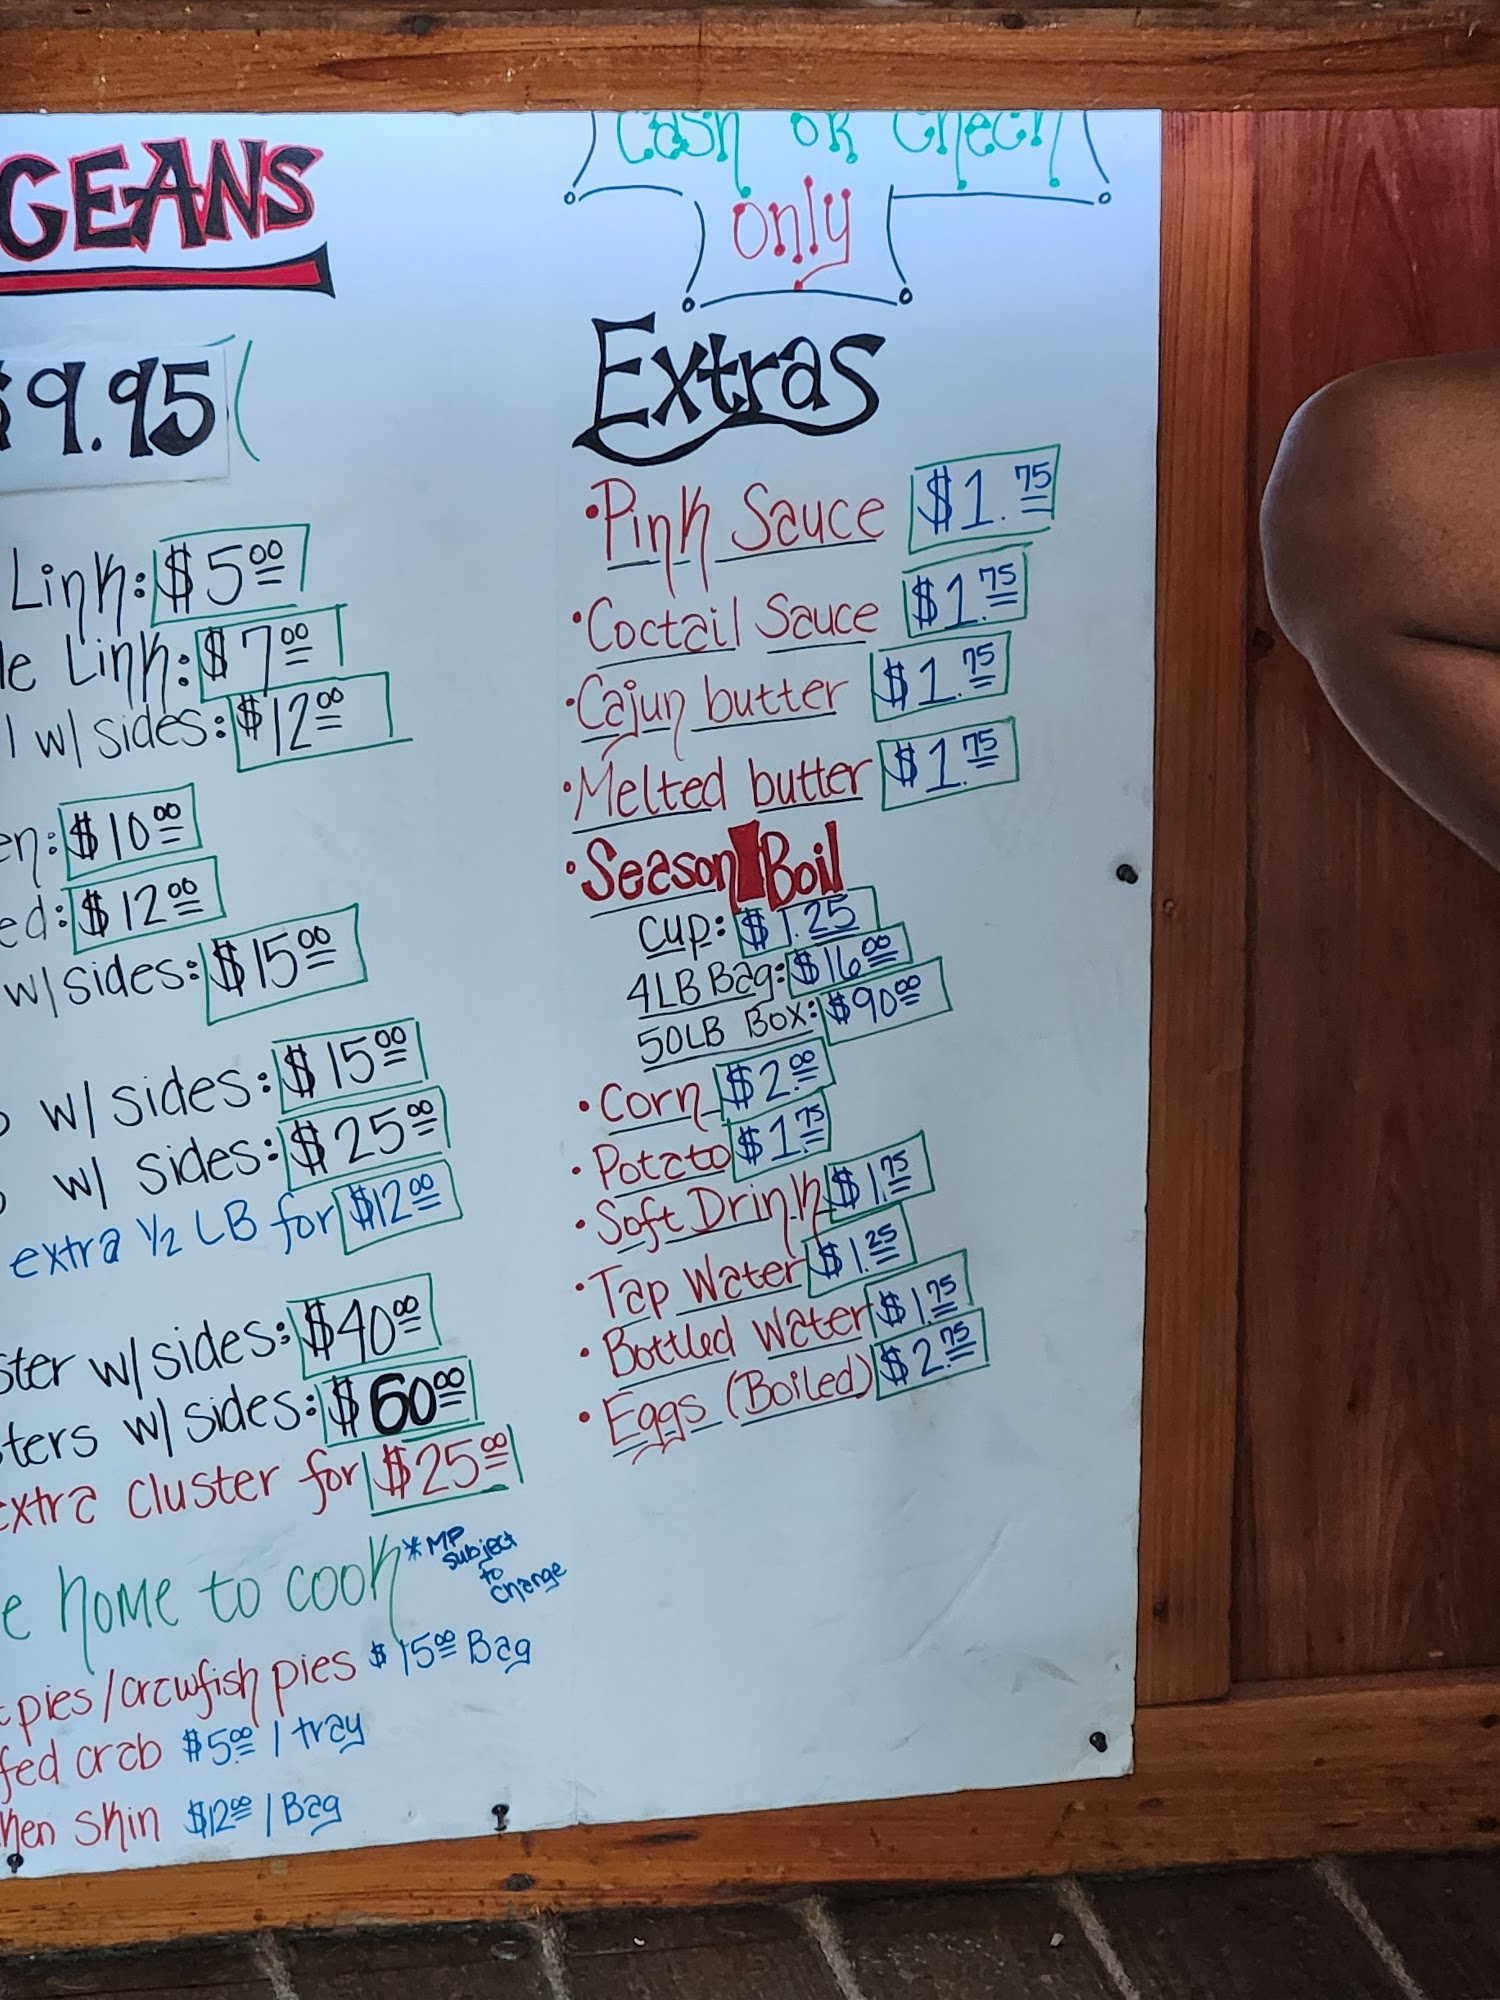 GEANS
$9.95
Link: $5.00
Link: $7.00
w/ sides: $12.00
$10.00
$12.00
w/sides: $15.00
w/ sides: $15.00
w/ sides: $25.00
extra 1/2 LB for $12.00
w/sides: $40.00
w/sides: $60.00
extra cluster for $25.00
home to cook *MP
subject
to
change
pies/crawfish pies $15.00 Bag
crab $5.00 / tray
skin $12.00 / Bag
Cash or Check
only
Extras
• Pink Sauce $1.75
• Coctail Sauce $1.75
• Cajun butter $1.75
• Melted butter $1.75
• Season Boil
Cup: $1.25
4LB Bag: $16.00
50LB Box: $90.00
• Corn $2.00
• Potato $1.75
• Soft Drink $1.75
• Tap Water $1.25
• Bottled Water $1.75
• Eggs (Boiled) $2.75